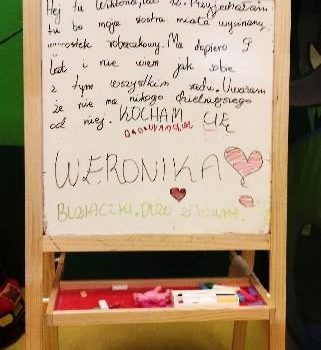 Hej tu Wiktoria, lat 12. Przyjechałam
tu bo moja siostra miała wycinany
wyrostek robaczkowy. Ma dopiero 9
lat i nie wiem jak sobie
z tym wszystkim radzi. Uważam
że nie ma nikogo dzielniejszego
od niej. KOCHAM CIĘ
WERONIKA
BUZIACZKI. DUŻO ZDRÓWKA.